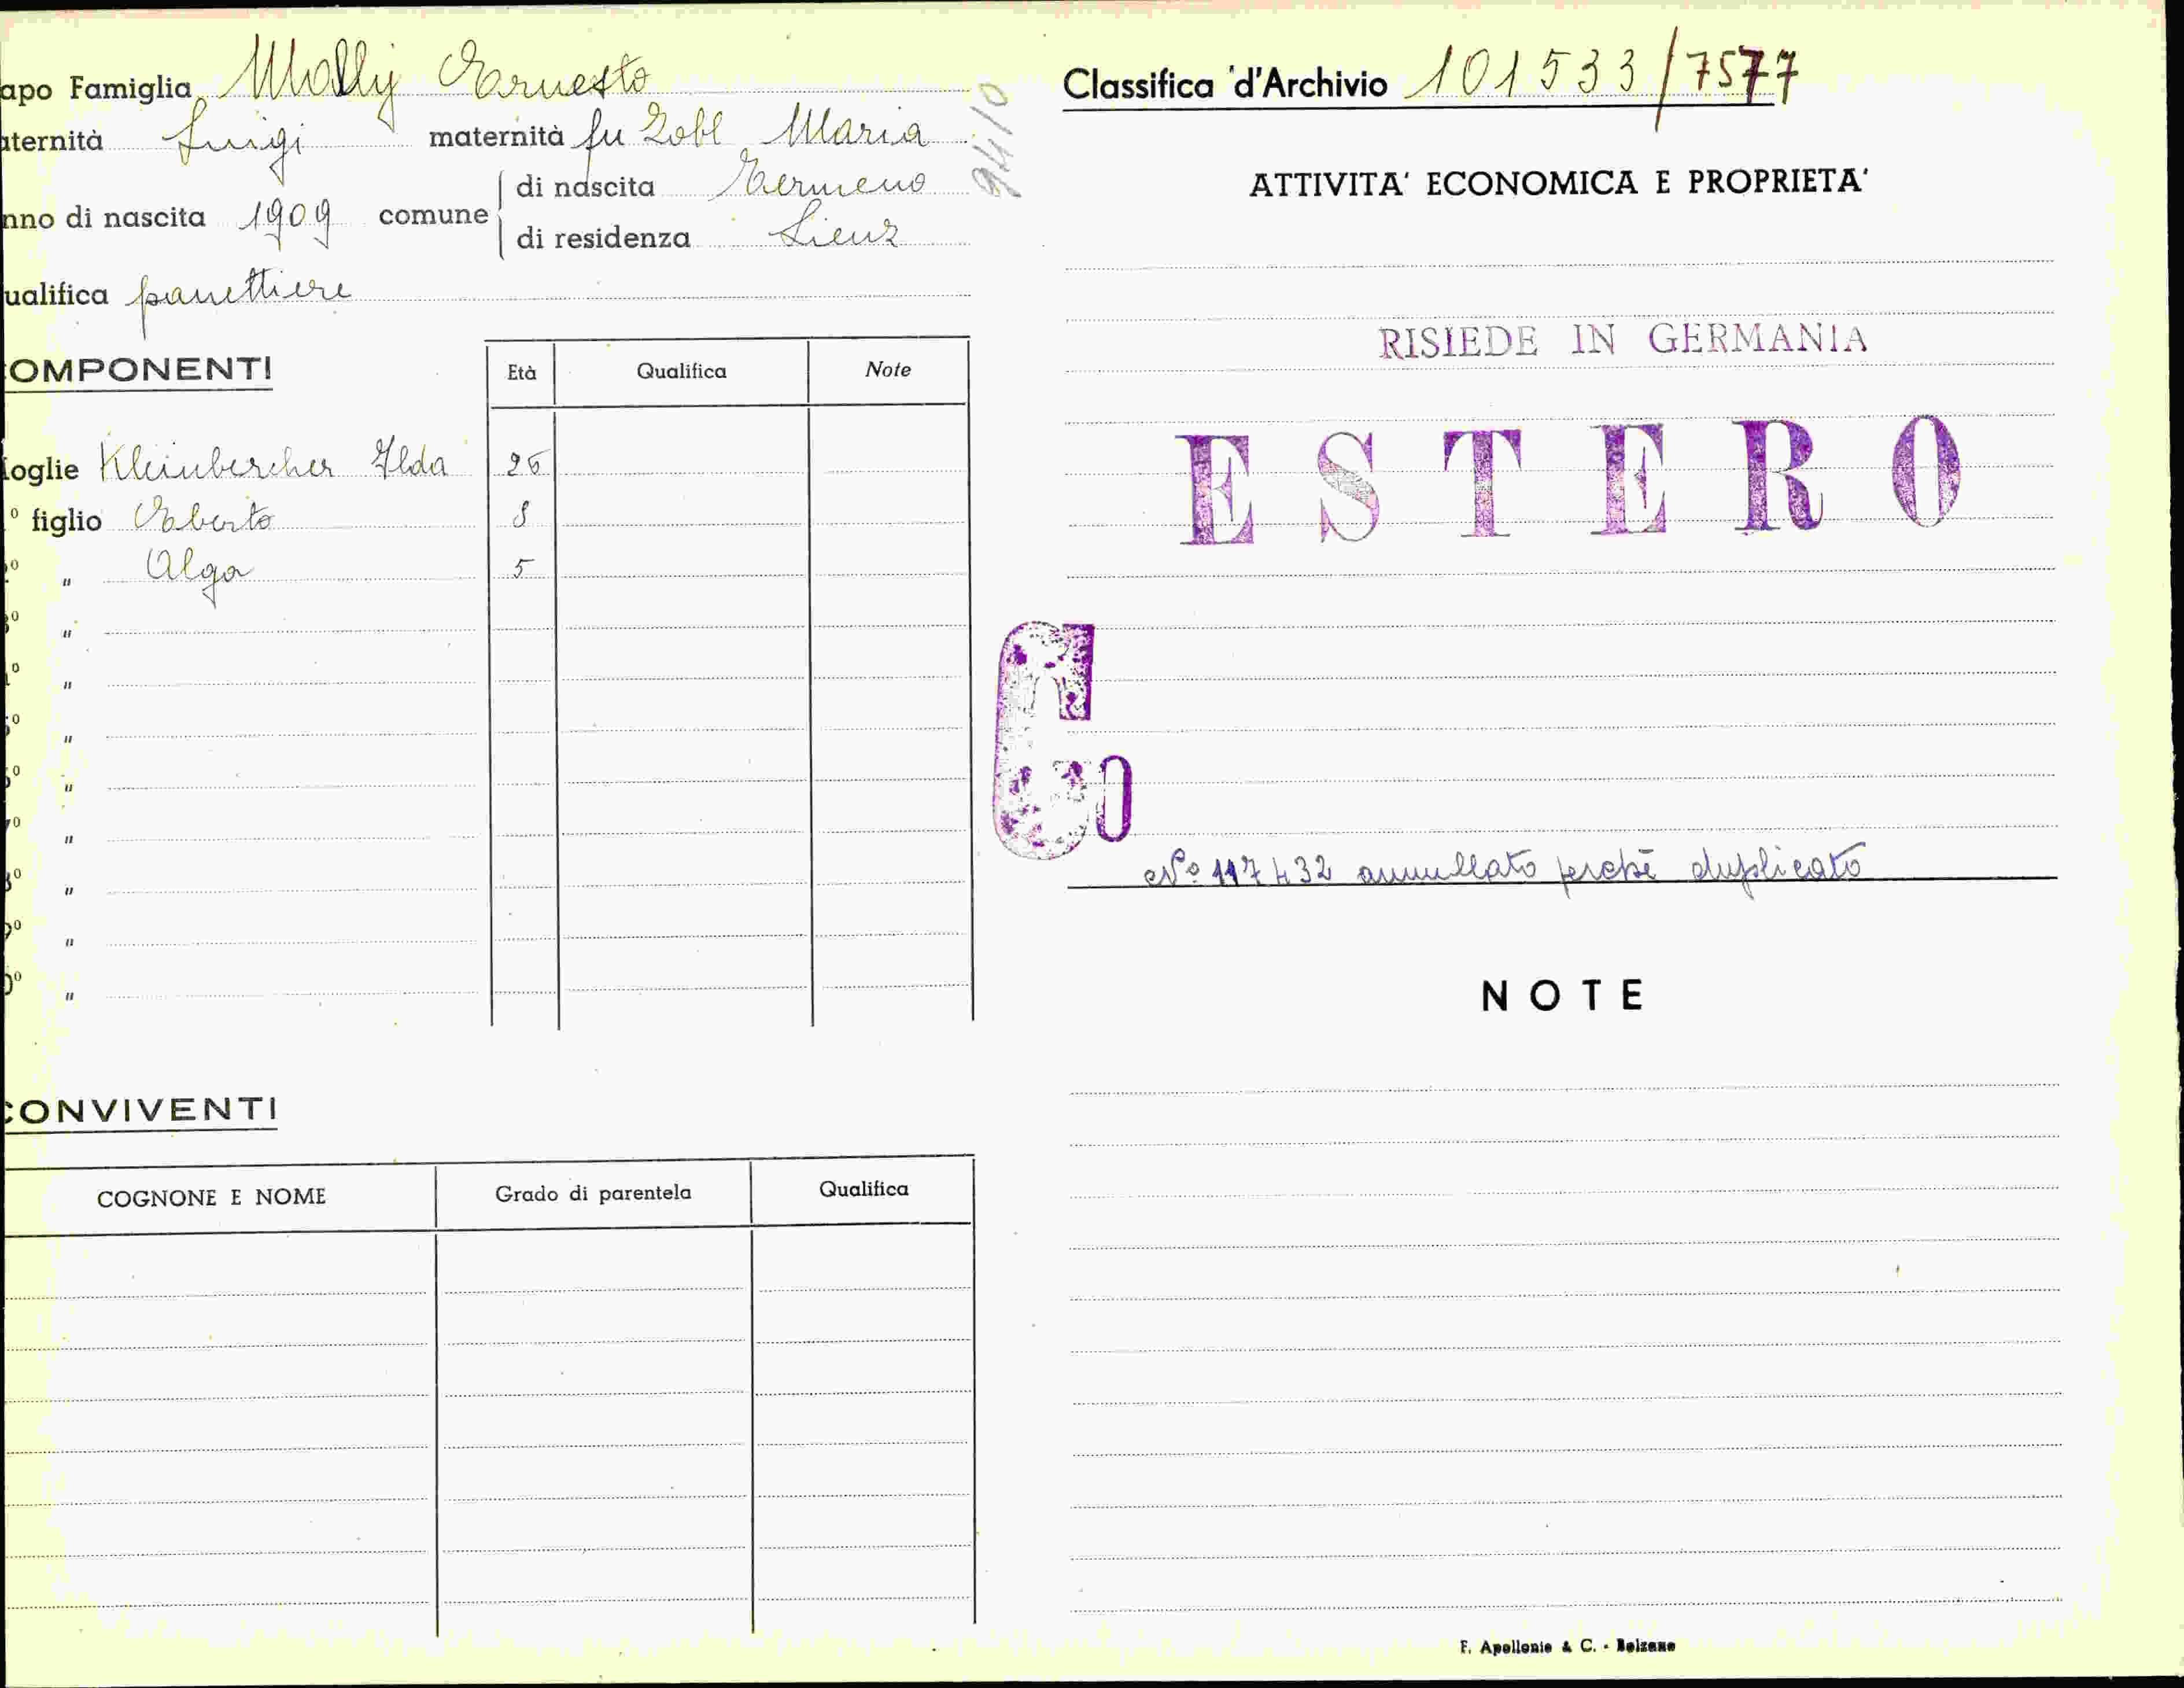 apo Famiglia Molly Ernesto
aternità Luigi maternità fu Zobl Maria
nno di nascita 1909 comune di nascita Termeno
di residenza Lienz
ualifica panettiere
OMPONENTI Età Qualifica Note
oglie Kleinbercher Ilda 26
° figlio Eberto 8
° " Alga 5
3° "
° "
5° "
6° "
7° "
8° "
9° "
0° "
CONVIVENTI
COGNONE E NOME Grado di parentela Qualifica
Classifica d'Archivio 101533/7577
ATTIVITA' ECONOMICA E PROPRIETA'
RISIEDE IN GERMANIA
ESTERO
G0
N° 117432 annullato perchè duplicato
NOTE
F. Apollonio & C. - Bolzano